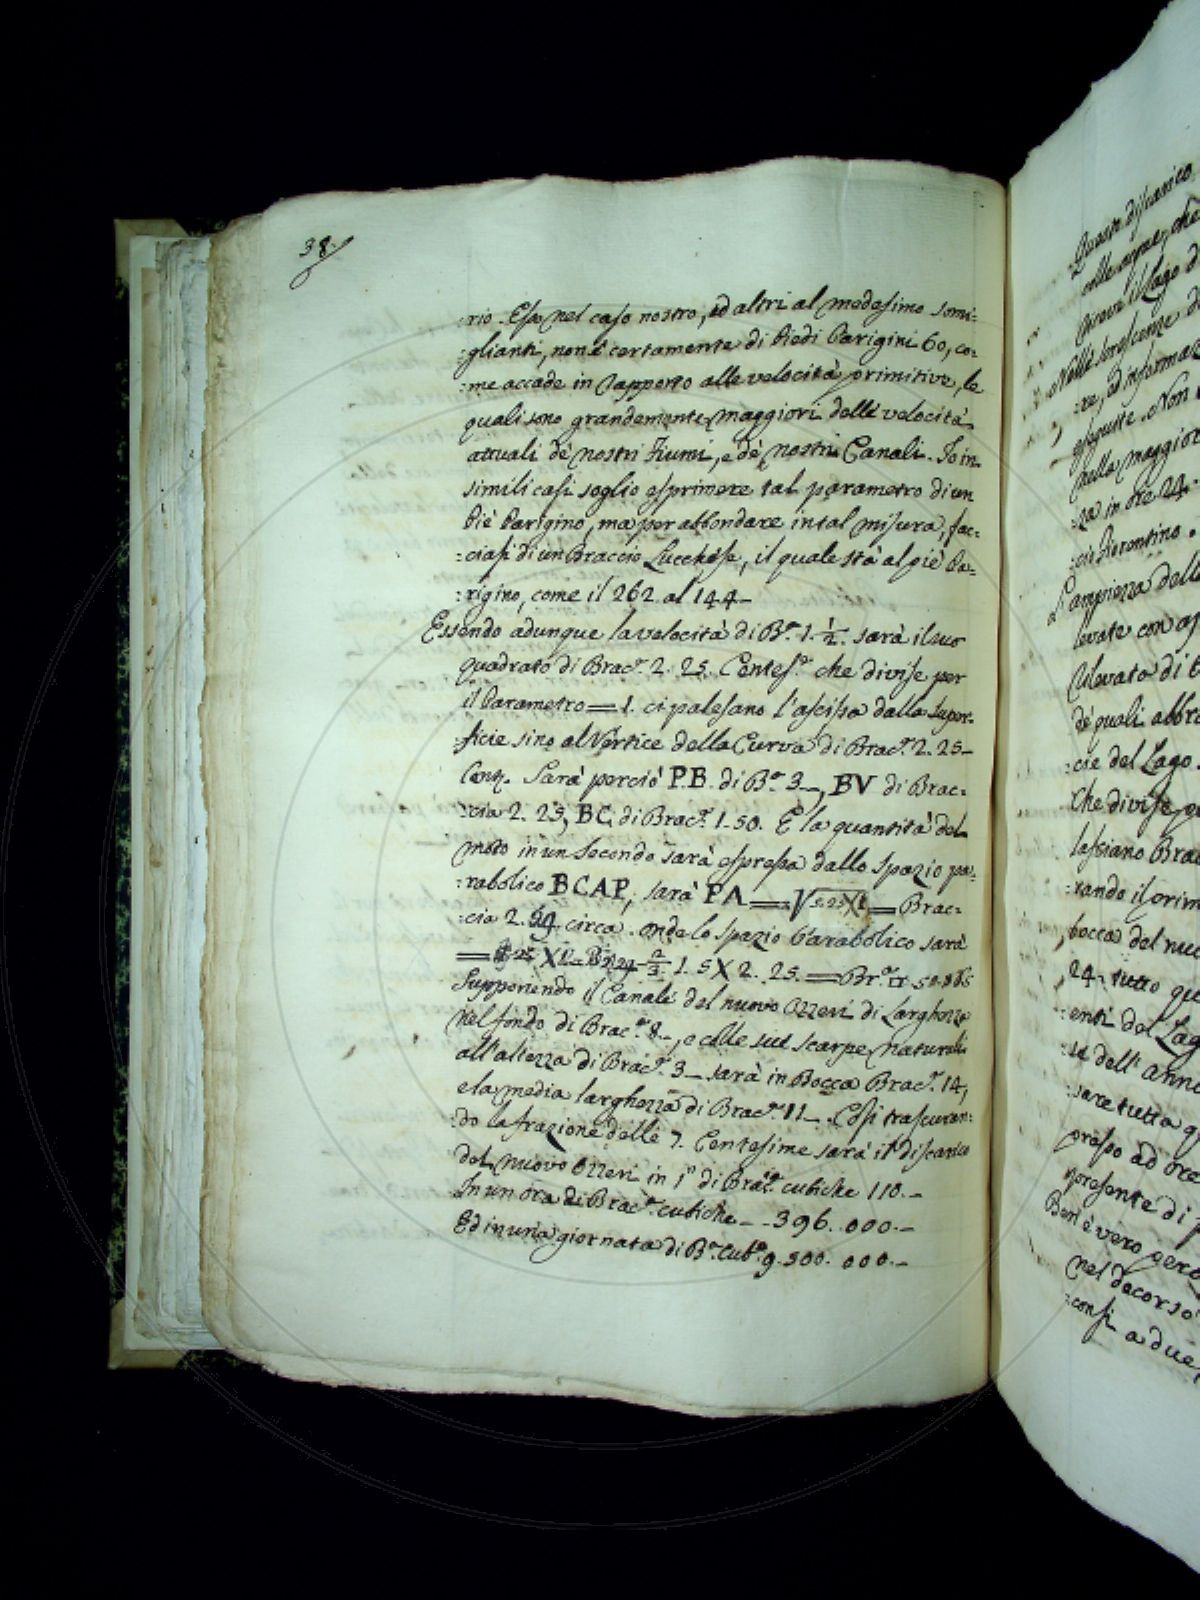 38.
rio. Esso nel caso nostro, ed altri al medesimo somi-
:glianti, non è certamente di Piedi Parigini 60, co-
:me accade in rapporto alle velocità primitive, le
quali sono grandemente maggiori delle velocità
attuali de' nostri Fiumi, e de' nostri Canali. Io in
simili casi soglio esprimere tal parametro di un
Piè Parigino, ma per abbondare in tal misura, fac-
:ciasi di un Braccio Lucchese, il quale stà al piè Pa-
:rigino, come il 262 al 144 –
Essendo adunque la velocità di B.ª 1. 1/2. sarà il suo
quadrato di Brac.ª 2. 25. Centes.e che divise per
il Parametro = 1. ci palesano l'ascissa dalla super-
ficie sino al Vertice della Curva di Brac.ª 2. 25 –
Cent. Sarà perciò P.B. di B.ª 3 –, BV di Brac-
:cia 2. 25, BC di Brac.ª 1.50. E la quantità del
moto in un secondo sarà espressa dallo spazio pa-
:rabolico BCAP, sarà PA = √5.25X1 = Brac-
:cia 2. circa. onde lo spazio Parabolico sarà
= 2/3. 1. 5 X 2. 25. = Br.ª
Supponendo il Canale del nuovo Ozzeri di Larghezza
nel fondo di Brac.ª 8 –, e colle sue scarpe naturali
all'altezza di Brac.ª 3 – sarà in Bocca Brac.ª 14,
e la media larghezza di Brac.ª 11 –. Così trascuran-
:do la frazione delle 7. Centesime sarà il discarico
del nuovo Ozzeri in 1" di Brac.ª cubiche 110. –
In un ora di Brac.ª cubiche – – 396. 000. –
Ed in una giornata di B.ª Cub.e 9. 500. 000. –
Questo discarico
colle acque, che
riceve il Lago
Nelle
:re, ed informar
eseguite. Non
nella maggior
:za in ore 24.
:cio Fiorentino.
L'ampiezza dell
levate con
rilevato di
de' quali abbr
:cie del Lago.
che divise
lasciano Brac
:rando il prim
bocca del nuo
24. tutto qu
:enti del Lag
dell' anno
:sare tutta q
presso ad ore
presente di
Ben è vero però
nel decorso
:consi a due